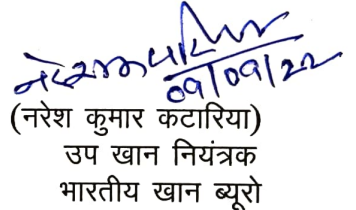 09/09/22
(नरेश कुमार कटारिया)
उप खान नियंत्रक
भारतीय खान ब्यूरो